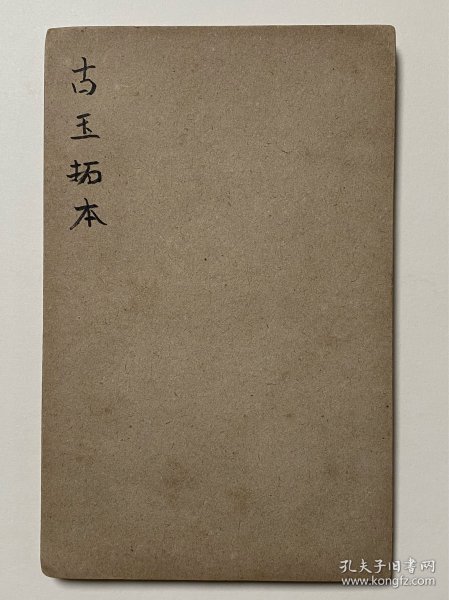 古玉拓本
孔夫子旧书网
www.kongfz.com